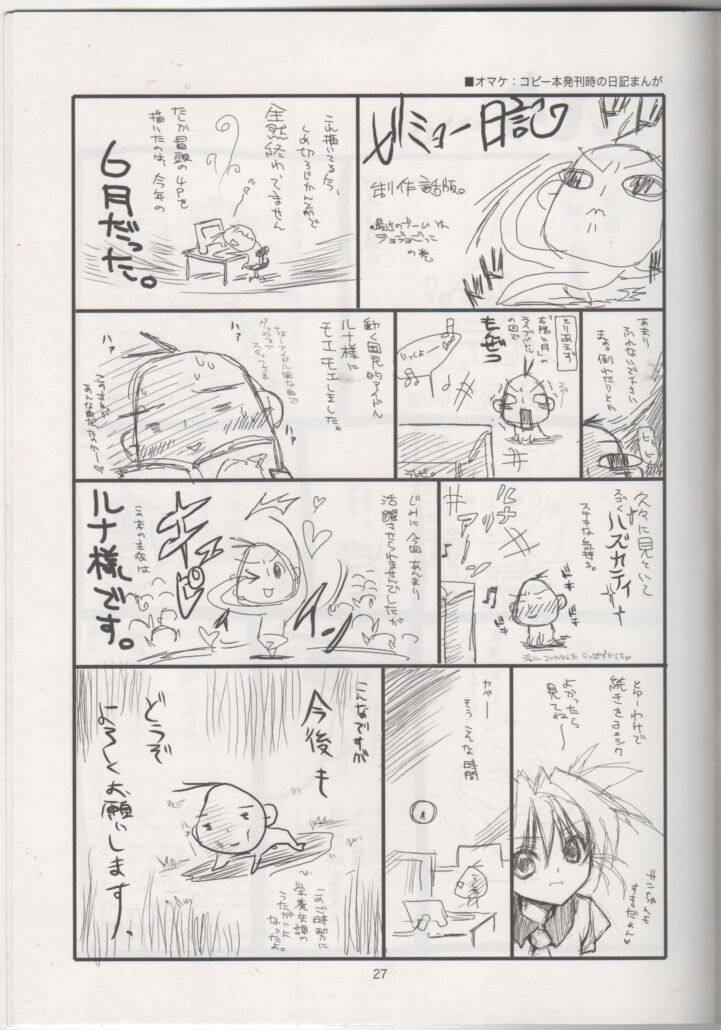 ■オマケ：コピー本発刊時の日記まんが
ガミョー日記
制作話版。
最近のブームは
ジョジョごっこ
の巻
これ描いてる今、
しめ切りじかん前で
全然終わってません
たしか冒頭の4Pを
描いたのは、今年の
6月だった。
あまり
ふれないで下さい
まず、倒れたりとか
とりあえず
「太陽と月」の
ライブバトル
の図で
もんぜつ
じっくよ
動く国民的アイドル
ルナ様に
モエモエしました。
ハァ
ハァ
ハァ
久々に見といて
ハズカティ
ステキな気持ち。
ドキ
ドキ
じみに今回あんまり
活躍させられませんでしたが
イン
この本の主役は
ルナ様です。
とゆーわけで
続きをヨロシク
よかったら
見てね〜
サニちゃんも
すきだよん
カベ——
もう こんな時間
こんなですが
今後も
どうぞ
よろしくお願いします。
このご時勢に
栄養失調の
うたがいに
なったよ。
27